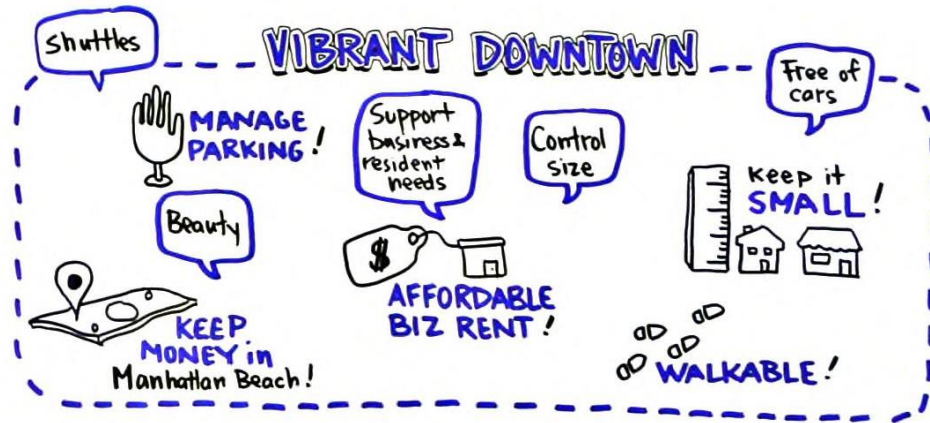 VIBRANT DOWNTOWN
Shuttles
MANAGE
PARKING!
Support
business &
resident
needs
Control
size
Free of
cars
Keep it
SMALL!
Beauty
$
AFFORDABLE
BIZ RENT!
KEEP
MONEY in
Manhattan Beach!
WALKABLE!